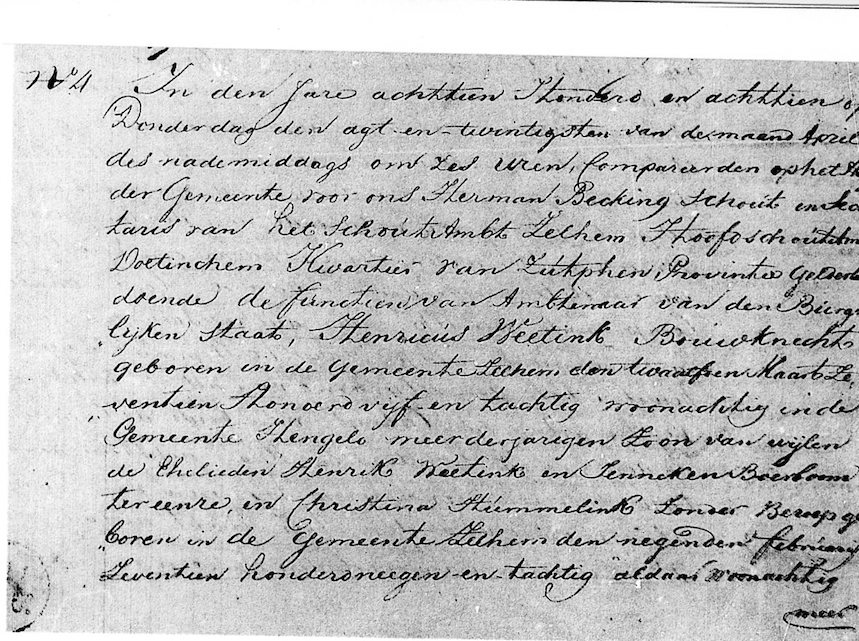 No 4 In den Jare achttien Honderd en achttien op
Donderdag den agt-en-twintigsten van de maand April
des nademiddags om zes uren, Compareerden op het
der Gemeente, voor ons Herman Becking Schout en Secre
taris van het Schout Ambt Zelhem Hoofdschoutam
Doetinchem Kwartier van Zutphen, Provintie Gelderla
doende de function van Ambtenaar van den Burge
lyken Staat, Henricus Weetink Bouwknecht
geboren in de Gemeente Zelhem den twaalfden Maart Ze„
„ventien Honderd vyf-en tachtig woonachtig in de
Gemeente Hengelo meerderjarigen Zoon van wylen
de Ehelieden Henrik Weetink en Jenneken Boerboom
ter eenre, en Christina Stummelink Zonder Beroep ge
„boren in de Gemeente Zelhem den negenden february
Zeventien honderdneegen-en-tachtig aldaar woonachtig
meer